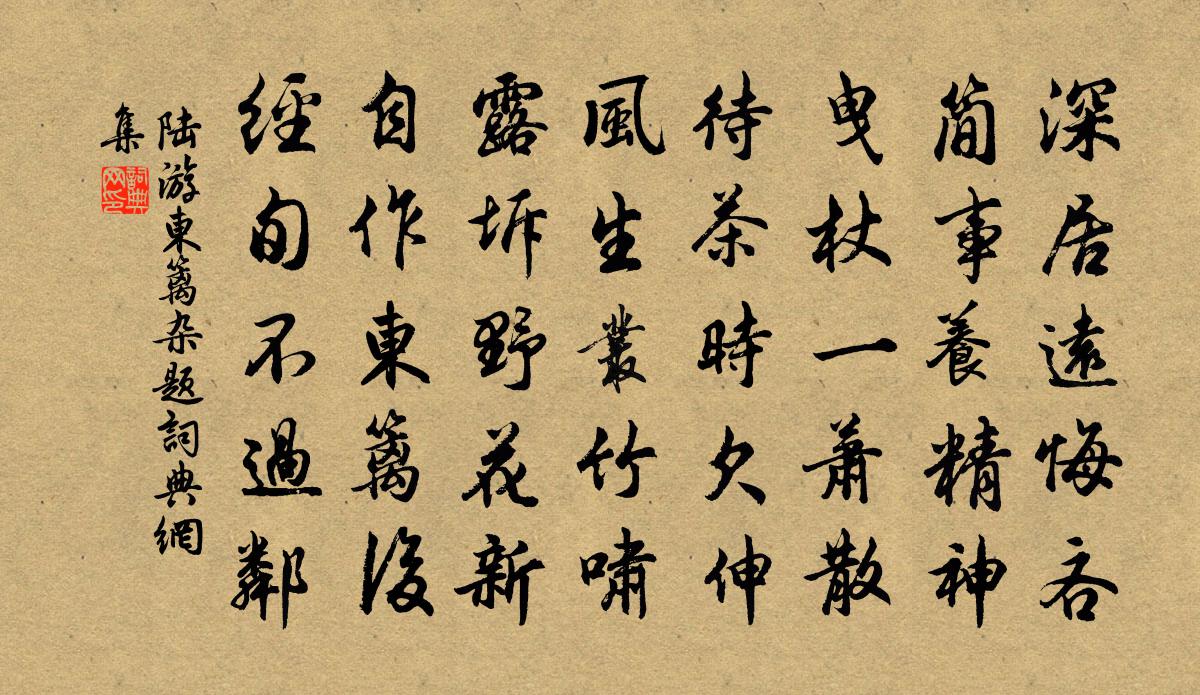 深居遠悔吝
簡事養精神
曳杖一蕭散
待茶時欠伸
風生叢竹嘯
露坼野花新
自作東籬後
經旬不過鄰
陆游東籬杂題詞典網
集
詞典
网印